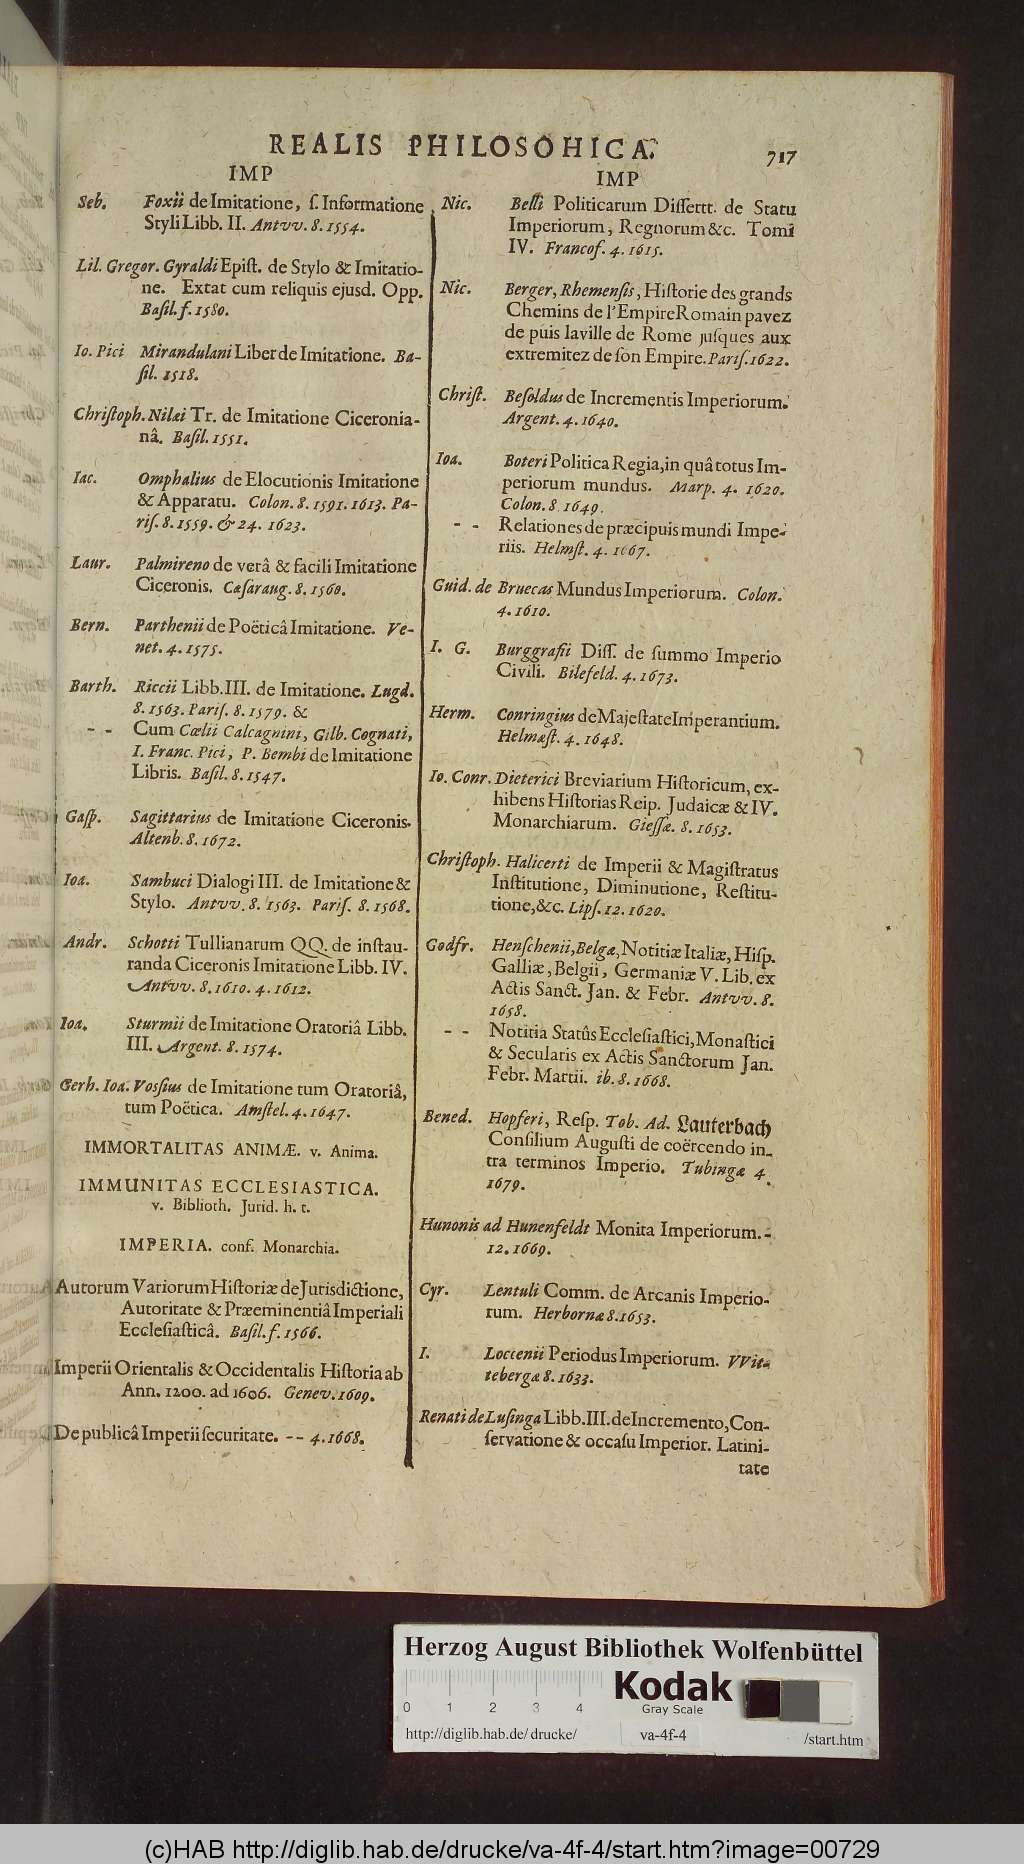 REALIS PHILOSOHICA.
717
IMP
Seb. Foxii de Imitatione, ſ. Informatione
Styli Libb. II. Antvv. 8. 1554.
Lil. Gregor. Gyraldi Epiſt. de Stylo & Imitatio-
ne. Extat cum reliquis ejusd. Opp.
Baſil. f. 1580.
Io. Pici Mirandulani Liber de Imitatione. Ba-
ſil. 1518.
Chriſtoph. Nilæi Tr. de Imitatione Ciceronia-
nâ. Baſil. 1551.
Iac. Omphalius de Elocutionis Imitatione
& Apparatu. Colon. 8. 1591. 1613. Pa-
riſ. 8. 1559. & 24. 1623.
Laur. Palmireno de verâ & facili Imitatione
Ciceronis. Cæſaraug. 8. 1560.
Bern. Parthenii de Poëticâ Imitatione. Ve-
net. 4. 1575.
Barth. Riccii Libb. III. de Imitatione. Lugd.
8. 1563. Pariſ. 8. 1579. &
- - Cum Cœlii Calcagnini, Gilb. Cognati,
I. Franc. Pici, P. Bembi de Imitatione
Libris. Baſil. 8. 1547.
Gaſp. Sagittarius de Imitatione Ciceronis.
Altenb. 8. 1672.
Ioa. Sambuci Dialogi III. de Imitatione &
Stylo. Antvv. 8. 1563. Pariſ. 8. 1568.
Andr. Schotti Tullianarum QQ. de inſtau-
randa Ciceronis Imitatione Libb. IV.
Antvv. 8. 1610. 4. 1612.
Ioa. Sturmii de Imitatione Oratoriâ Libb.
III. Argent. 8. 1574.
Gerh. Ioa. Voſsius de Imitatione tum Oratoriâ,
tum Poëtica. Amſtel. 4. 1647.
IMMORTALITAS ANIMÆ. v. Anima.
IMMUNITAS ECCLESIASTICA.
v. Biblioth. Jurid. h. t.
IMPERIA. conf. Monarchia.
Autorum Variorum Hiſtoriæ de Jurisdictione,
Autoritate & Præeminentiâ Imperiali
Eccleſiaſticâ. Baſil. f. 1566.
Imperii Orientalis & Occidentalis Hiſtoria ab
Ann. 1200. ad 1606. Genev. 1609.
De publicâ Imperii ſecuritate. - - 4. 1668.
IMP
Nic. Belli Politicarum Diſſertt. de Statu
Imperiorum, Regnorum &c. Tomi
IV. Francof. 4. 1615.
Nic. Berger, Rhemenſis, Hiſtorie des grands
Chemins de l'Empire Romain pavez
de puis la ville de Rome juſques aux
extremitez de ſon Empire. Pariſ. 1622.
Chriſt. Beſoldus de Incrementis Imperiorum.
Argent. 4. 1640.
Ioa. Boteri Politica Regia, in quâ totus Im-
periorum mundus. Marp. 4. 1620.
Colon. 8 1649.
- - Relationes de præcipuis mundi Impe-
riis. Helmſt. 4. 1667.
Guid. de Bruecas Mundus Imperiorum. Colon.
4. 1610.
I. G. Burggrafii Diſſ. de ſummo Imperio
Civili. Bilefeld. 4. 1673.
Herm. Conringius de Majeſtate Imperantium.
Helmæſt. 4. 1648.
Io. Conr. Dieterici Breviarium Hiſtoricum, ex-
hibens Hiſtorias Reip. Judaicæ & IV.
Monarchiarum. Gieſſæ. 8. 1653.
Chriſtoph. Halicerti de Imperii & Magiſtratus
Inſtitutione, Diminutione, Reſtitu-
tione, &c. Lipſ. 12. 1620.
Godfr. Henſchenii, Belgæ, Notitiæ Italiæ, Hiſp.
Galliæ, Belgii, Germaniæ V. Lib. ex
Actis Sanct. Jan. & Febr. Antvv. 8.
1658.
- - Notitia Statûs Eccleſiaſtici, Monaſtici
& Secularis ex Actis Sanctorum Jan.
Febr. Martii. ib. 8. 1668.
Bened. Hopferi, Reſp. Tob. Ad. Lauterbach
Conſilium Auguſti de coërcendo in-
tra terminos Imperio. Tubingæ 4.
1679.
Hunonis ad Hunenfeldt Monita Imperiorum. -
12. 1669.
Cyr. Lentuli Comm. de Arcanis Imperio-
rum. Herbornæ 8. 1653.
I. Loccenii Periodus Imperiorum. VVit-
tebergæ 8. 1633.
Renati de Luſinga Libb. III. de Incremento, Con-
ſervatione & occaſu Imperior. Latini-
tate
Herzog August Bibliothek Wolfenbüttel
Kodak
Gray Scale
0 1 2 3 4
http://diglib.hab.de/drucke/ va-4f-4 /start.htm
(c)HAB http://diglib.hab.de/drucke/va-4f-4/start.htm?image=00729